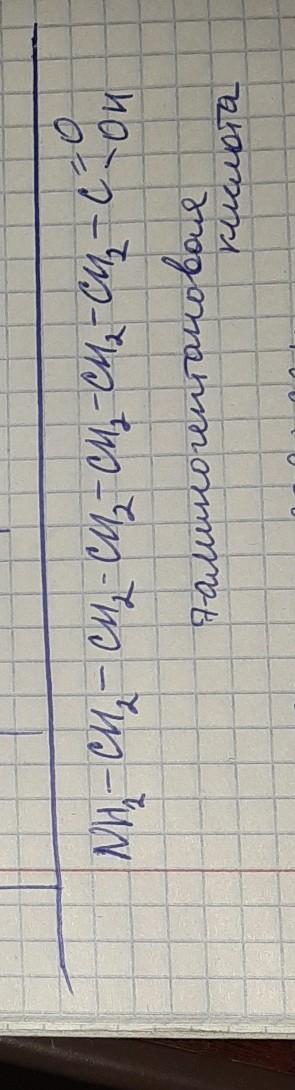 NH₂–CH₂–CH₂–CH₂–CH₂–CH₂–CH₂–C=O
–OH
7-аминогептановая
кислота